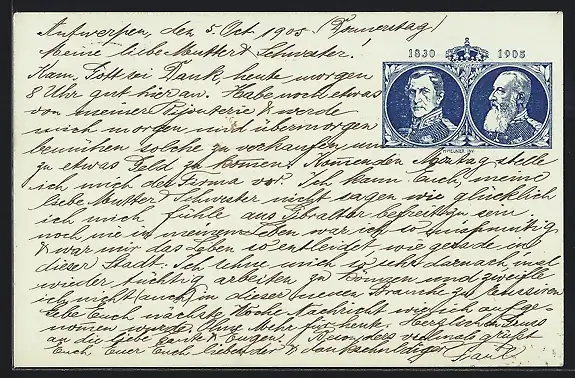 Antwerpen, den 5 Oct 1905. (Donnerstag)
1830 1905
Meine liebe Mutter & Schwester.
Kam, Gott sei Dank, heute morgen
8 Uhr gut hier an. Habe noch etwas
von meiner Bijouterie & werde
mich morgen und übermorgen
bemühen solche zu verkaufen um
zu etwas Geld zu komen. Komenden Montag stelle
ich mich der Firma vor. Ich kann Euch, meine
liebe Mutter & Schwester nicht sagen wie glücklich
ich mich fühle aus Gibraltar befreit zu sein
noch nie in meinem Leben war ich so
& war mir das Leben so entleidet wie gerade in
dieser Stadt. Ich sehne mich so sehr darnach mal
wieder tüchtig arbeiten zu können und zweifle
ich nicht (auch) in dieser neuen Branche zu
Gebe Euch nächste Woche Nachricht wie ich aufge-
nomen wurde. Ohne Mehr für heute. Herzlichen Gruss
an die liebe Tante & Eugen. & grüsst
Euch Euer Euch liebender & dankschuldiger